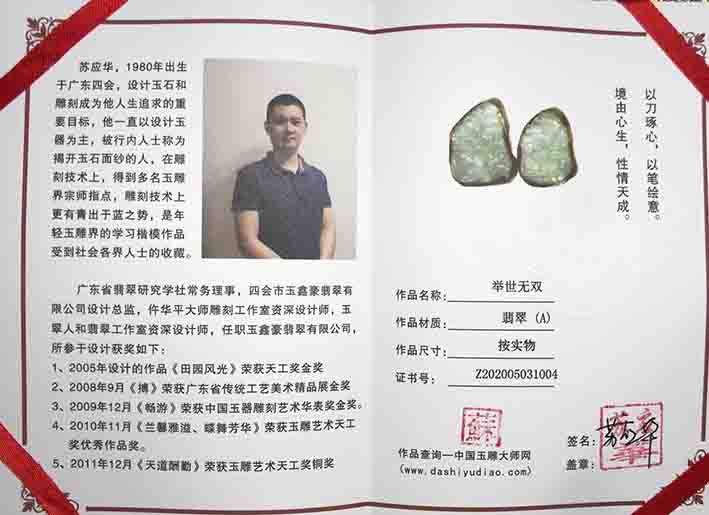 苏应华，1980年出生
于广东四会，设计玉石和
雕刻成为他人生追求的重
要目标，他一直以设计玉
器为主，被行内人士称为
揭开玉石面纱的人，在雕
刻技术上，得到多名玉雕
界宗师指点，雕刻技术上
更有青出于蓝之势，是年
轻玉雕界的学习楷模作品
受到社会各界人士的收藏。
广东省翡翠研究学社常务理事，四会市玉鑫豪翡翠有
限公司设计总监，仵华平大师雕刻工作室资深设计师，玉
翠人和翡翠工作室资深设计师，任职玉鑫豪翡翠有限公司，
所参于设计获奖如下：
1、2005年设计的作品《田园风光》荣获天工奖金奖
2、2008年9月《搏》荣获广东省传统工艺美术精品展金奖
3、2009年12月《畅游》荣获中国玉器雕刻艺术华表奖金奖。
4、2010年11月《兰馨雅滋、蝶舞芳华》荣获玉雕艺术天工
奖优秀作品奖。
5、2011年12月《天道酬勤》荣获玉雕艺术天工奖铜奖
以刀琢心，以笔绘意。
境由心生，性情天成。
作品名称： 举世无双
作品材质： 翡翠（A）
作品尺寸： 按实物
证书号： Z202005031004
蘇
作品查询—中国玉雕大师网
(www.dashiyudiao.com)
签名：
盖章：